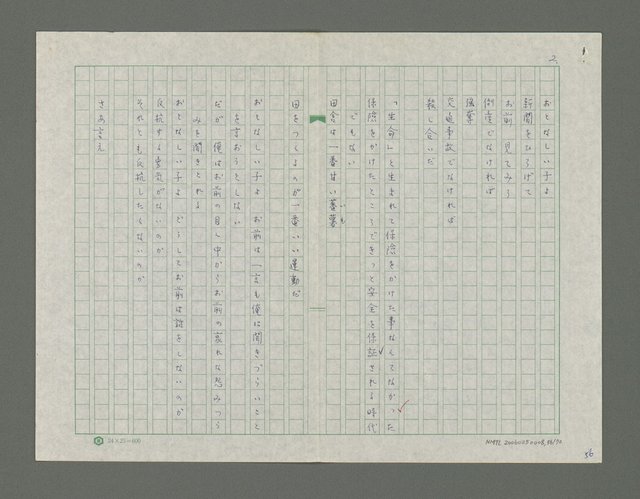 2.
おとなしい子よ
新聞をひろげて
お前 見てみろ
倒産でなければ
強奪
交通事故でなければ
殺し合いだ
「生命」と生まれて保険をかけた事なくてなかった
保険をかけたところできっと安全を保証される時代
でもない
いも
田舎は一番甘い蕃薯
田をつくるのが一番いい運動だ
おとなしい子よ お前は一言も俺に聞きづらいこと
を言おうとしない
だが 俺はお前の目の中からお前の哀れな怨みつら
みを聞きとれる
おとなしい子よ どうしてお前は話をしないのか
反抗する勇気がないのか
それとも反抗したくないのか
さあ言え
24×25=600
NMTL 20060250008, 56/70
56